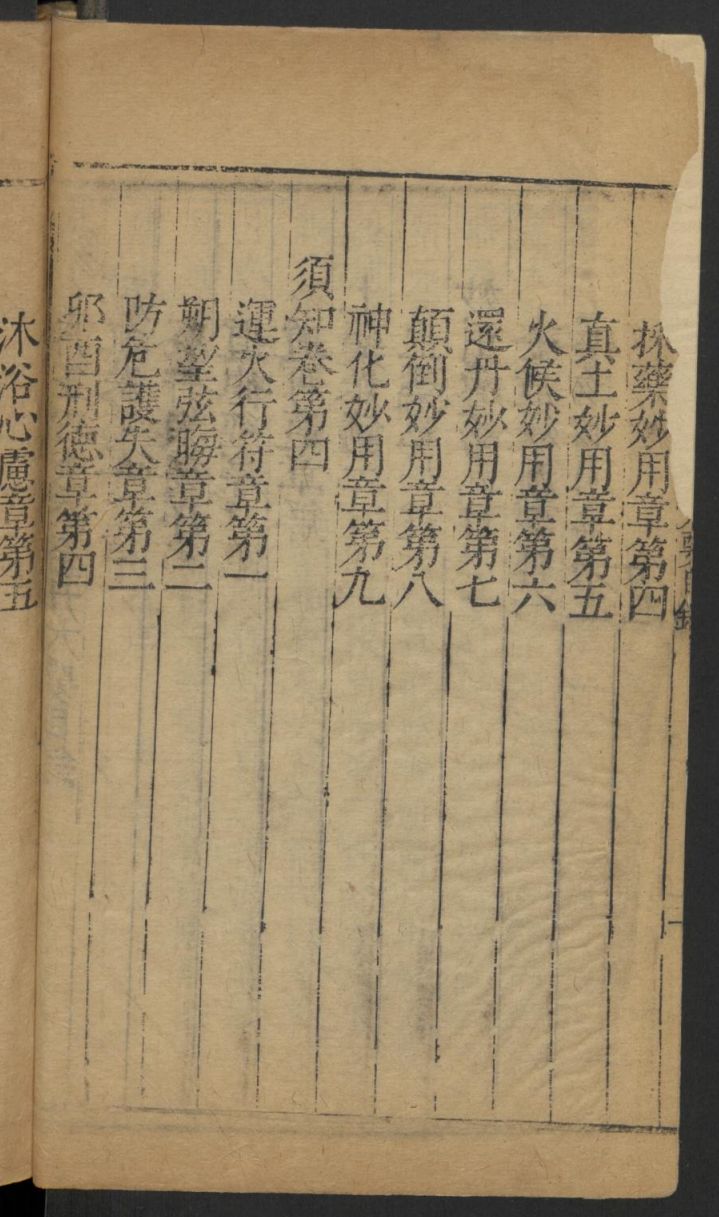 目錄
採藥妙用章第四
真土妙用章第五
火候妙用章第六
還丹妙用章第七
顛倒妙用章第八
神化妙用章第九
須知卷第四
運火行符章第一
朔望弦晦章第二
防危護失章第三
卯酉刑德章第四
沐浴心慮章第五